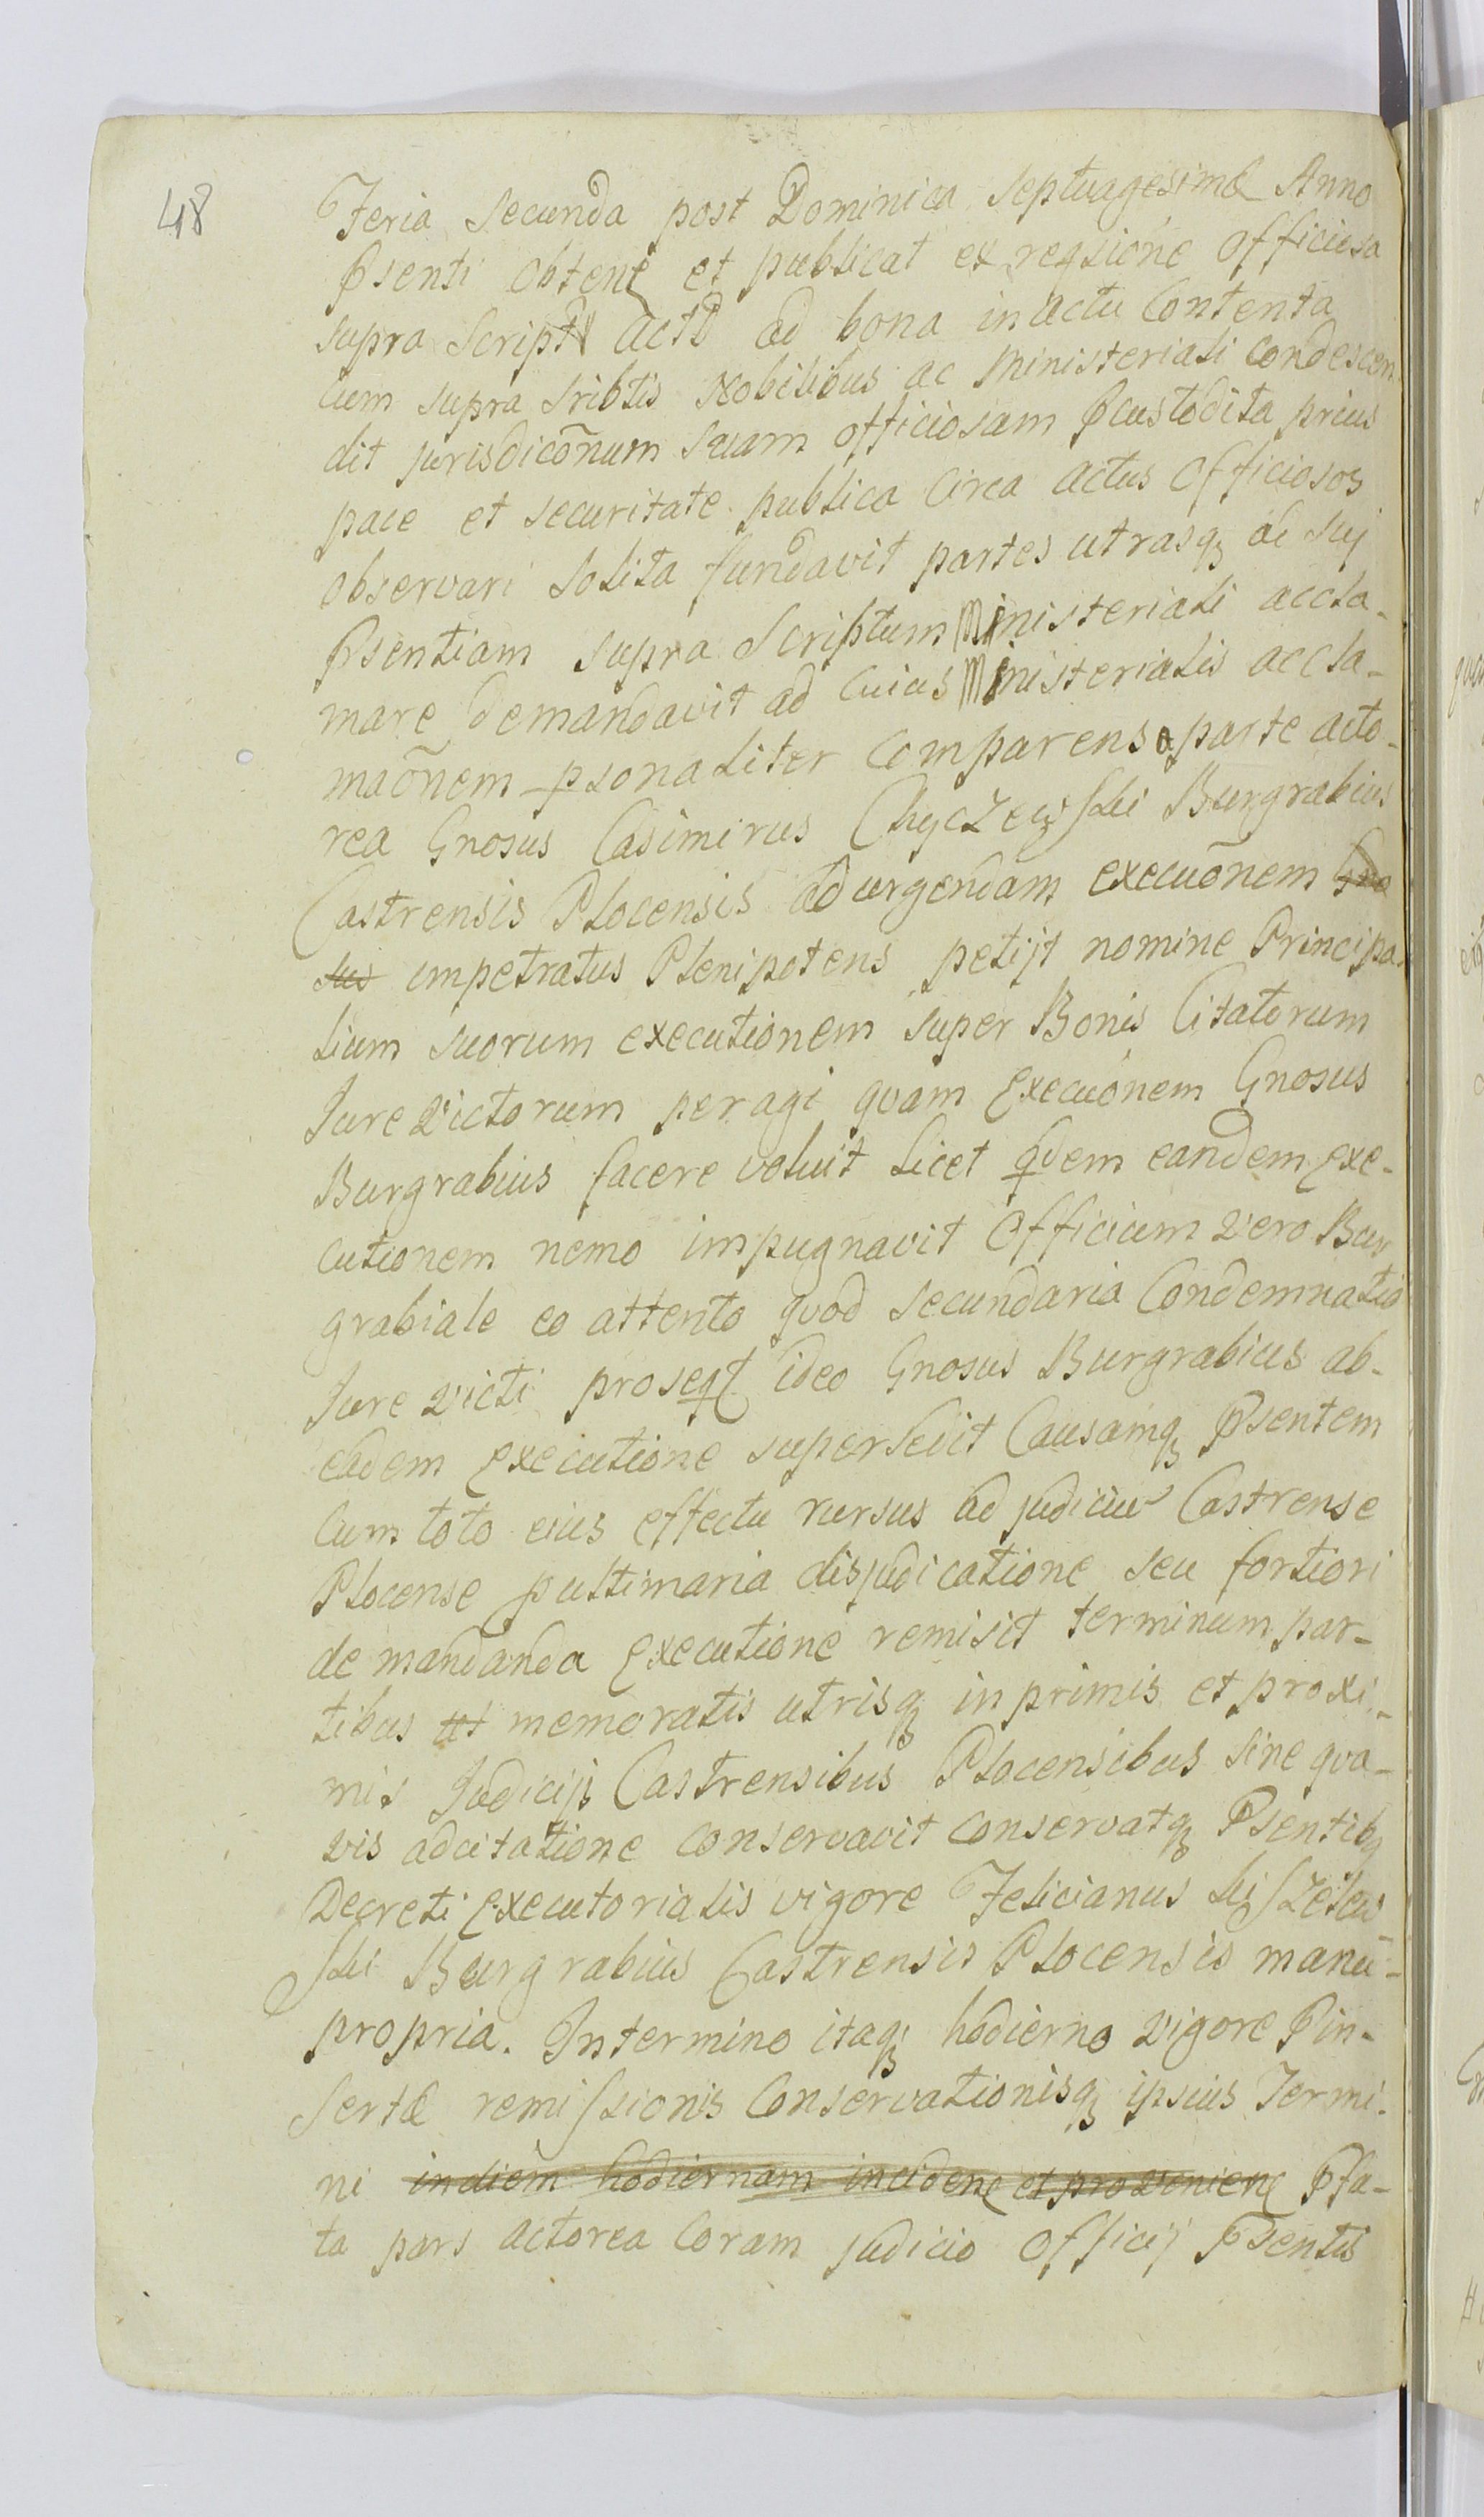 48
Feria secunda post Dominica septuagesimæ Anno
Psenti obtent et publicat ex reqsione officiosa
supra Script actu ad bona in actu Contenta
cum supra sribtis Nobilibus ac Ministeriali condescen-
dit jurisdicõnum suam officiosam Pcustodita prius
pace et securitate publica Circa actus Officiosos
observari solita fundavit partes utrasq ad suj
Psentiam supra Scriptum Ministeriali accla-
mare demandavit ad cuius Ministerialis accla-
maõnem psonaliter Comparens a parte acto-
rea Gnosus Casimirus Burgrabius
Castrensis Plocensis ad urgendam execuõnem Gno
sus impetratus Plenipotens petijt nomine Principa-
lium suorum executionem super Bonis Citatorum
Jure Victorum peragi quam Execuõnem Gnosus
Burgrabius facere voluit licet qdem eandem Exe-
cutionem nemo impugnavit Officium vero Bur
grabiale eo attento quod secundaria Condemnatio
Jure victi proseqt ideo Gnosus Burgrabius ab-
eadem Executione supersedit Causamq Psentem
Cum toto eius effectu rursus ad judiciu Castrense
Plocense pultimaria disjudicatione seu fortiori
de mandanda Executione remisit terminum par-
tibus ut memoratis utrisq in primis et proxi-
mis Judicijs Castrensibus Plocensibus sine qva-
vis adcitatione conservavit conservatq Psentibq
Decreti Executorialis vigore Felicianus
ski Burgrabius Castrensis Plocensis manu-
propria. In termino itaq hodierno vigore Pin-
sertæ remissionis Conservationisq ipsius Termi-
ni in diem hodiernam incident et provenient Pfa-
ta pars actorea Coram judicio officij Psentis